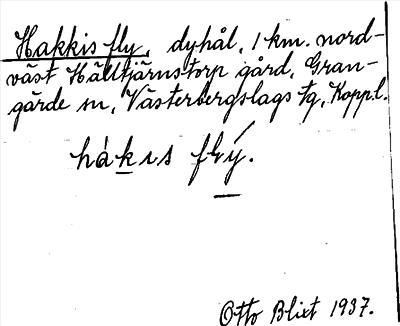 Hakkis fly, dyhål, 1 km. nord-
väst Hälltjärnstorp gård, Gran-
gärde sn, Västerbergslags tg, Koppl.
hákıs flý.
Otto Blixt 1937.